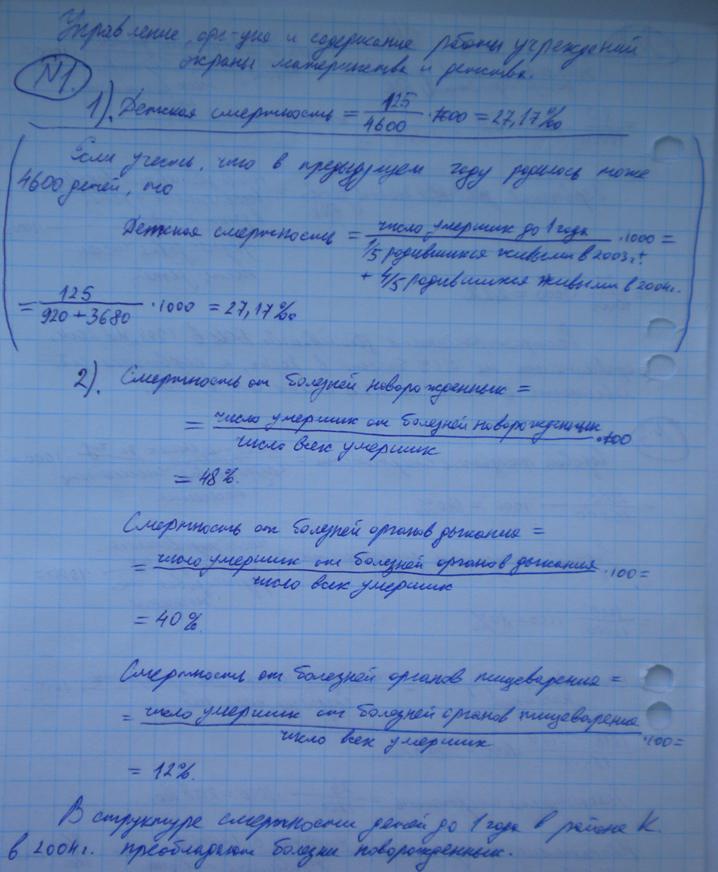 Управление, орг-ция и содержание работы учреждений
охраны материнства и детства.
N1.
1). Детская смертность = 125/4600 · 1000 = 27,17‰
Если учесть, что в предыдущем году родилось тоже
4600 детей, то
Детская смертность = число умерших до 1 года / 1/5 родившихся живыми в 2003г. + · 1000 =
+ 4/5 родившихся живыми в 2004г.
= 125/920 + 3680 · 1000 = 27,17‰
2). Смертность от болезней новорожденных =
= число умерших от болезней новорожденных · 100
число всех умерших
= 48%.
Смертность от болезней органов дыхания =
= число умерших от болезней органов дыхания · 100 =
число всех умерших
= 40%
Смертность от болезней органов пищеварения =
= число умерших от болезней органов пищеварения · 100 =
число всех умерших
= 12%.
В структуре смертности детей до 1 года в районе К.
в 2004г. преобладают болезни новорожденных.